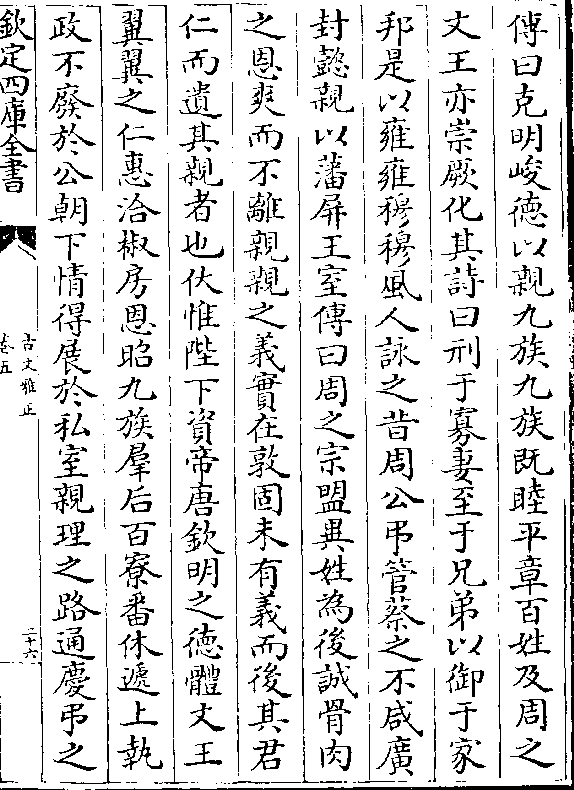 傳曰克明峻德以親九族九族既睦平章百姓及周之
文王亦崇厥化其詩曰刑于寡妻至于兄弟以御于家
邦是以雍雍穆穆風人詠之昔周公弔管蔡之不咸廣
封懿親以藩屏王室傳曰周之宗盟異姓為後誠骨肉
之恩爽而不離親親之義實在敦固未有義而後其君
仁而遺其親者也伏惟陛下資帝唐欽明之德體文王
翼翼之仁惠洽椒房恩昭九族羣后百寮番休遞上執
政不廢於公朝下情得展於私室親理之路通慶弔之
欽定四庫全書
古文雅正
卷五
二十六